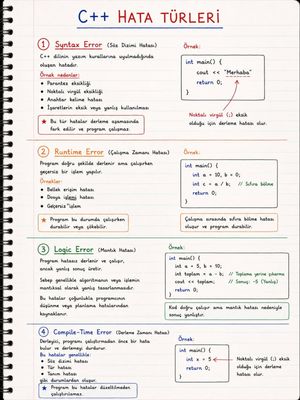 C++ HATA TÜRLERİ
1 Syntax Error (Söz Dizimi Hatası)
C++ dilinin yazım kurallarına uyulmadığında
oluşan hatadır.
Örnek nedenler:
• Parantez eksikliği
• Noktalı virgül eksikliği
• Anahtar kelime hatası
• İşaretlerin eksik veya yanlış kullanılması
★ Bu tür hatalar derleme aşamasında
fark edilir ve program çalışmaz
Örnek:
int main() {
cout << "Merhaba"
return 0;
}
Noktalı virgül (;) eksik
olduğu için derleme hatası olur.
2 Runtime Error (Çalışma Zamanı Hatası)
Program doğru şekilde derlenir ama çalışırken
geçersiz bir işlem yapılır.
Örnekler:
• Bellek erişim hatası
• Dosya işlemi hatası
• Geçersiz işlem
★ Program bu durumda çalışırken
durabilir veya çökebilir.
Örnek:
int main() {
int a = 10, b = 0;
int c = a / b; // Sıfıra bölme
return 0;
}
Çalışma sırasında sıfıra bölme hatası
oluşur ve program durabilir.
3 Logic Error (Mantık Hatası)
Program hatasız derlenir ve çalışır,
ancak yanlış sonuç üretir.
Sebep genellikle algoritmanın veya işlemin
mantıksal olarak yanlış tasarlanmasıdır.
Bu hatalar çoğunlukla programcının
düşünme veya planlama hatalarından
kaynaklanır.
Örnek:
int main() {
int a = 5, b = 10;
int toplam = a - b; // Toplama yerine çıkarma
cout << toplam; // Sonuç: -5 (Yanlış)
return 0;
}
Kod doğru çalışır ama mantık hatası nedeniyle
sonuç yanlıştır.
4 Compile-Time Error (Derleme Zamanı Hatası)
Derleyici, program çalıştırılmadan önce bir hata
bulur ve derlemeyi durdurur.
Bu hatalar genellikle:
• Söz dizimi hatası
• Tür hatası
• Tanım hatası
gibi durumlardan oluşur.
★ Program bu hatalar düzeltilmeden
çalıştırılamaz.
Örnek:
int main() {
int x = 5
return 0;
}
Noktalı virgül (;) eksik
olduğu için derleme
hatası olur.